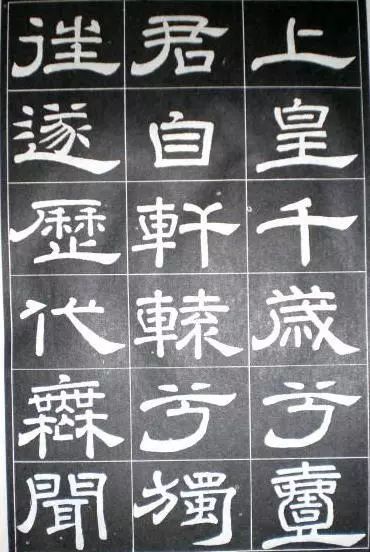 上皇千歲兮壹
君自軒轅兮獨
往遂歷代橆聞